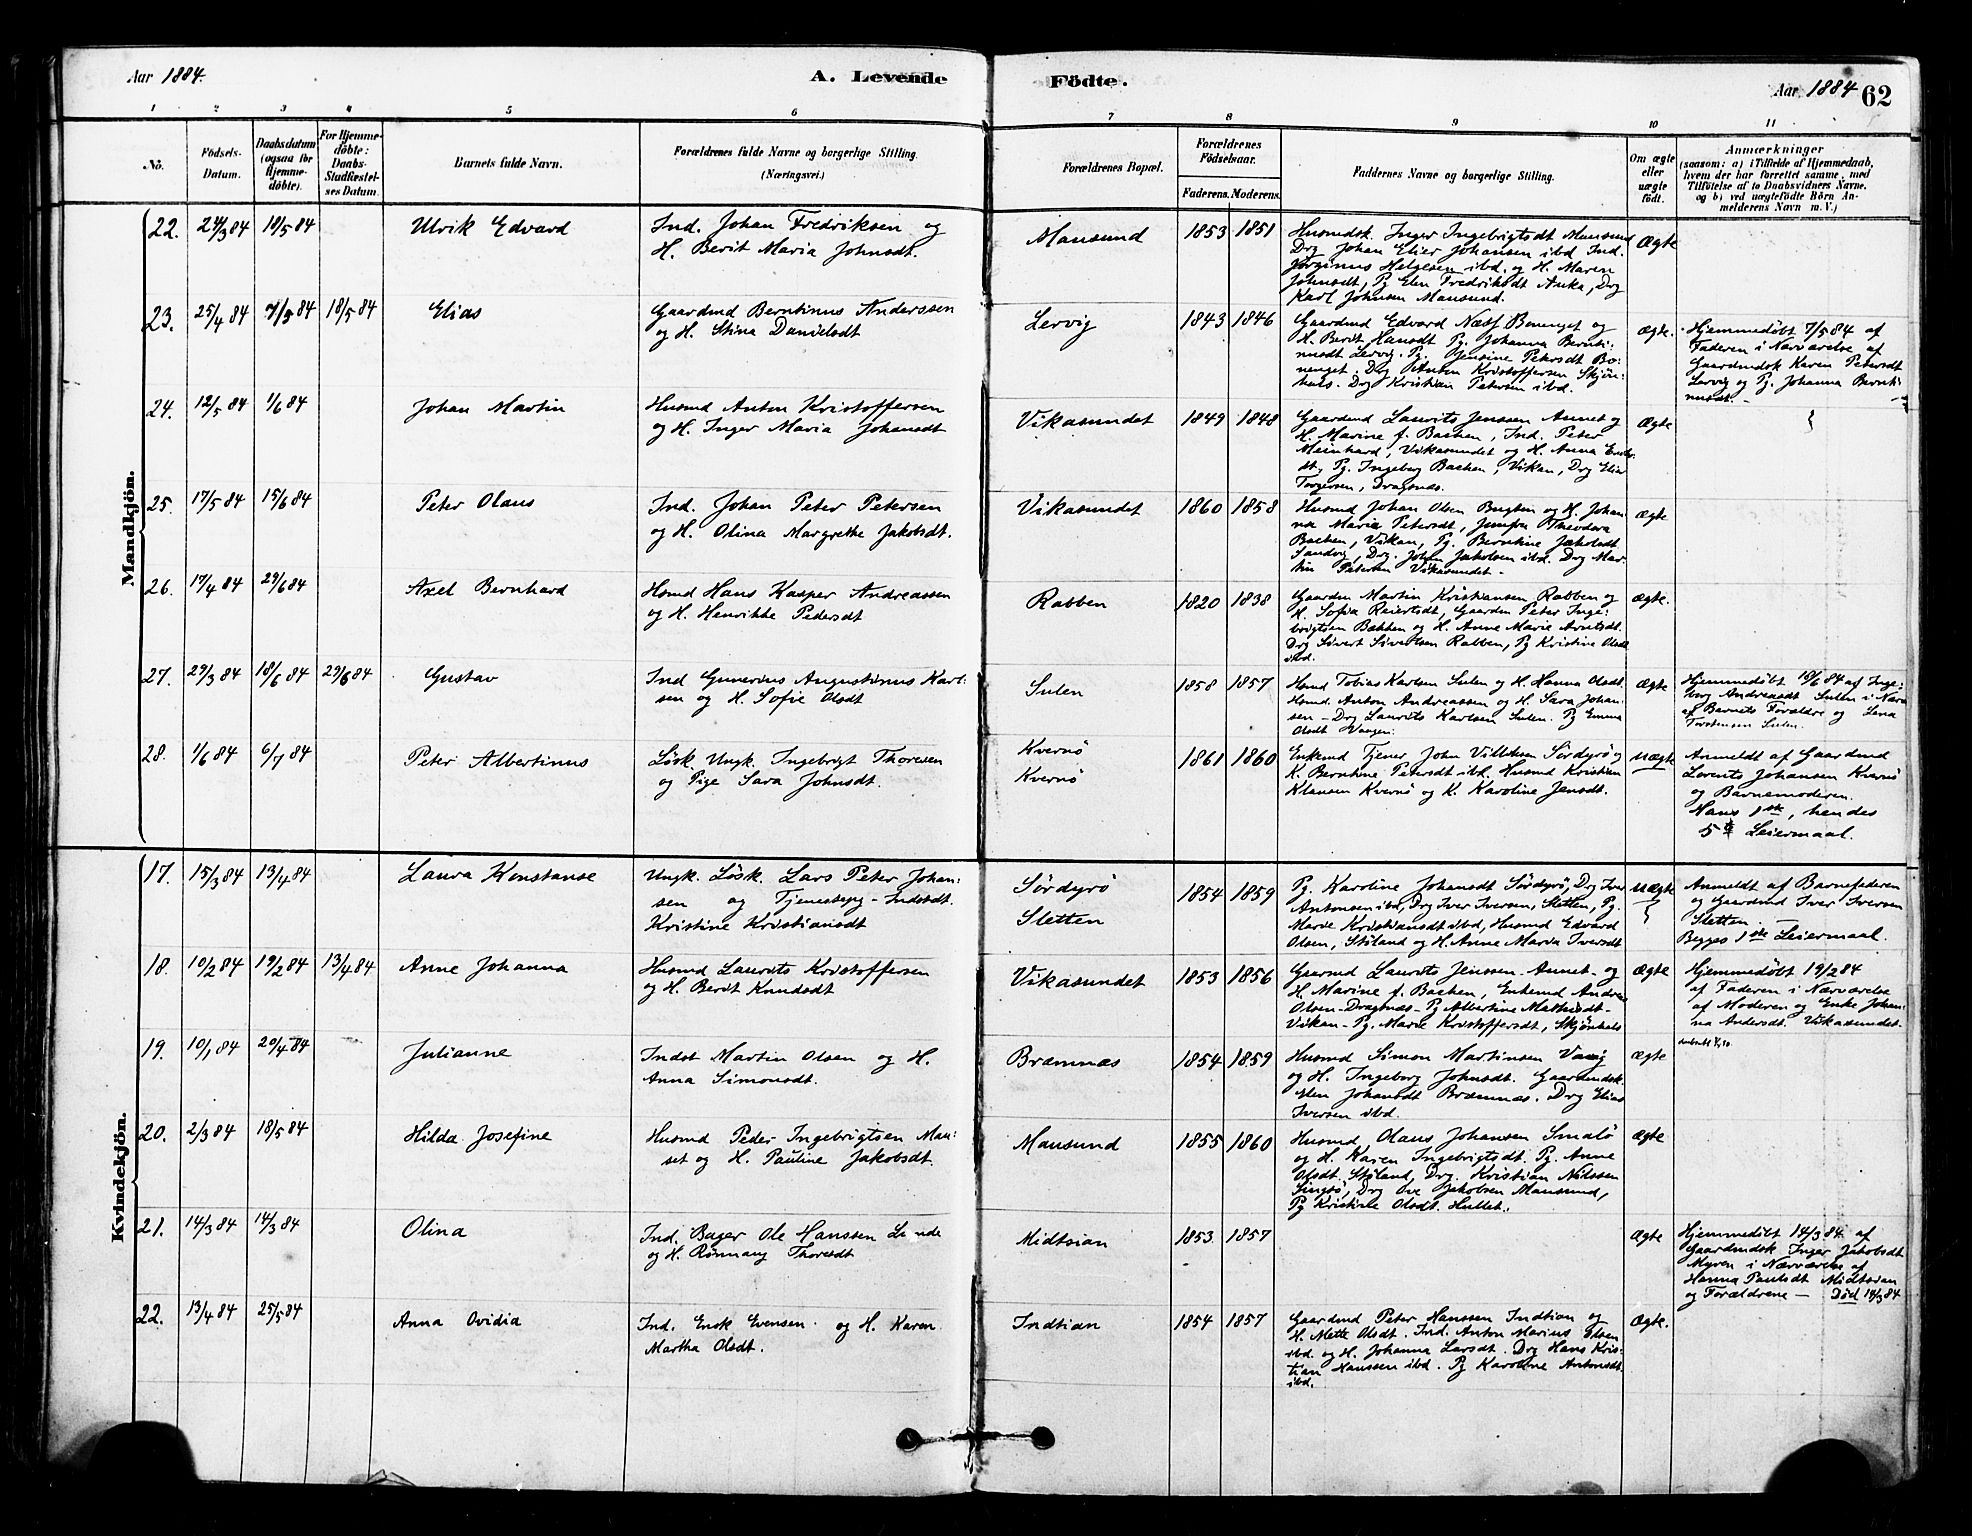 Aar 1884.
A. Levende Födte.
Aar 1884 62
1 2 3 4 5 6 7 8 9 10 11
No.
Födsels-Datum.
Daabsdatum (ogsaa for Hjemme-döbte).
For Hjemme-döbte: Daabs-Stadfæstel-ses Datum.
Barnets fulde Navn.
Forældrenes fulde Navne og borgerlige Stilling.
(Næringsvei.)
Forældrenes Bopæl.
Forældrenes Födselsaar.
Faderens. Moderens.
Faddernes Navne og borgerlige Stilling.
Om ægte eller uægte födt.
Anmærkninger
(saasom: a) i Tilfælde af Hjemmedaab,
hvem der har forrettet samme, med
Tilföielse af to Daabsvidners Navne.
og b) ved uægtefödte Börn An-
melderens Navn m. V.)
Mandkjön.
22. 24/3 84 18/5 84 Ulrik Edvard
Ind. Johan Fredriksen og
H. Berit Maria Johnsdt.
Mausund 1853 1851
Husmdsk. Inger Ingebrigtsdt Mausund
Drg Johan Elier Johansen ibd Ind.
Jörginus Helgesen ibd. og H. Maren
Johnsdt, Pg Elen Fredriksdt Auka, Drg
Karl Johnsen Mausund.
Ægte
23. 25/4 84 7/5 84 18/5 84 Elias
Gaardmd Berntinus Anderssen
og H. Stina Danielsdt
Lervig 1843 1846
Gaardmd Edvard Næss Bonenget og
H. Berit Hansdt Pg. Johanna Bernti-
nusdt Lervig. Pg. Jensine Petersdt Bo-
nenget. Drg Anton Kristoffersen Skjön-
hals. Drg Kristian Petersen ibd.
Ægte.
Hjemmedøbt 7/5 84 af
Faderen i Nærværelse af
Gaardmdsk Karen Petersdt
Lervig og Pg. Johanna Bernti-
nusdt. –
24. 12/5 84 1/6 84 Johan Martin
Husmd Anton Kristoffersen
og H. Inger Maria Johansdt
Vikasundet 1849 1848
Gaardmd Laurits Jenssen Annet og
H. Marine f. Bachen, Ind. Peter
Meinhard, Vikasundet og H. Anna
Pg. Ingeborg Bachen, Vikan, Drg Elias
Torgersen, Dragsnæs.
Ægte
25. 17/5 84 15/6 84 Peter Olaus
Ind. Johan Peter Petersen
og H. Olina Margrethe Jakobsdt.
Vikasundet 1860 1858
Husmd Johan Olsen Bugten og H. Johan-
na Maria Petersdt, Jomfru Theodora
Bachen, Vikan, Pg. Berntine Jakobsdt
Sandvig, Drg. Johan Jakobsen ibd. Drg Mar-
tin Petersen Vikasundet.
Ægte
26. 17/4 84 29/6 84 Axel Bernhard
Hsmd Hans Kasper Andreassen
og H. Henrikke Pedersdt
Rabben 1820 1838
Gaardm Martin Kristiansen Rabben og
H. Sofia Reiertsdt, Gaardm Peter Inge-
brigtsen Bakken og H. Anne Marie Arntsdt.
Drg Sivert Sivertsen Rabben, Pg Kristine Olsdt
ibd.
Ægte.
27. 29/3 84 18/6 84 29/6 84 Gustav
Ind Gunerius Augustinus Karl-
sen og H. Sofie Olsdt
Sulen 1858 1857
Hsmd Tobias Karlsen Sulen og H. Hanna Olsdt.
Hsmd. Anton Andreassen og H. Sara Johan-
sen – Drg Laurits Karlsen Sulen. Pg Emma
Olsdt Vaagen.
Ægte
Hjemmedøbt 18/6 84 af Inge-
borg Andreasdt Sulen i Nærv
af Barnets Forældre og Lena
Torstensen Sulen.
28. 1/6 84 6/7 84 Peter Albertinus
Løsk. Ungk. Ingebrigt Thoresen
og Pige Sara Johnsdt.
Kvernö
Kvernö
1861 1860
Enkemd Tjener John Villatsen Sördyrö og
K. Berntine Petersdt ibd. Husmd Kristian
Klausen Kvernö og K. Karoline Jensdt.
Uægte
Anmeldt af Gaardmd
Lorents Johansen Kvernö
og Barnemoderen.
Hans 1ste, hendes
5te Leiermaal.
Kvindekjön.
17. 15/3 84 13/4 84 Laura Konstanse
Ungk. Løsk. Lars Peter Johan-
sen og Tjenestepg – Indstdt.
Kristine Kristiansdt
Sördyrö
Sletten
1854 1859
Pg. Karoline Johansdt Sördyrö, Drg Iver
Antonsen ibd, Drg Iver Iversen, Sletten, Pg.
Marie Kristiansdt ibd, Husmd Edvard
Olsen, Stöland og H. Anne Maria Iversdt
Uægte
Anmeldt af Barnefaderen
og Gaardmd Iver Iversen
Sletten –
Begges 1ste Leiermaal.
18. 10/2 84 19/2 84 13/4 84 Anne Johanna
Husmd Laurits Kristoffersen
og H. Berit Knudsdt
Vikasundet 1853 1856
Gaardmd Laurits Jenssen – Annet – og
H. Marine f. Bachen, Enkemd Andreas
Olsen – Dragsnæs – Pg Albertine Mathisdt –
Vikan – Pg. Marie Kristoffersdt, Skjönhals
Ægte
Hjemmedøbt 19/2 84
af Faderen i Nærværelse
af Moderen og Enke Johan-
na Andersdt. Vikasundet.
19. 10/1 84 20/4 84 Julianne
Indst Martin Olsen og H.
Anna Simonsdt.
Bræmnæs 1854 1859
Husmd Simon Martinsen Vaag
og H. Ingeborg Johnsdt. Gaardmdsk.
Elen Johansdt Bræmnæs. Drg Elias
Iversen ibd.
Ægte
20. 2/3 84 18/5 84 Hilda Josefine
Husmd Peder Ingebrigtsen Mau-
set og H. Pauline Jakobsdt.
Mausund 1855 1860
Husmd Olaus Johansen Smalö
og H. Karen Ingebrigtsdt. Pg. Anne
Olsdt. Stöland, Drg. Kristian Nilssen
Singsö, Drg Ove Jakobsen Mausund,
Pg Kristine Olsdt. Hullet.
Ægte
21. 14/3 84 14/3 84 Olina
Ind. Bager Ole Hanssen Linde
og H. Rönnaug Thoresdt
Midtsian 1853. 1857
Ægte
Hjemmedöbt 14/3 84 af
Gaardmdsk Inger Jakobsdt
Myren i Nærværelse af
Hanna Paulsdt Midtsian
og Forældrene – Död 14/3 84
22. 13/4 84 25/5 84 Anna Ovidia
Ind. Enok Evensen og H. Karen
Martha Olsdt.
Indtian 1854 1857
Gaardmd Peter Hanssen Indtian og
H. Mette Olsdt. Ind. Anton Marius Olsen
ibd. og H. Johanna Larsdt. Drg Hans Kris-
tian Hanssen ibd. Pg Karoline Antonsdt
ibd.
Ægte.